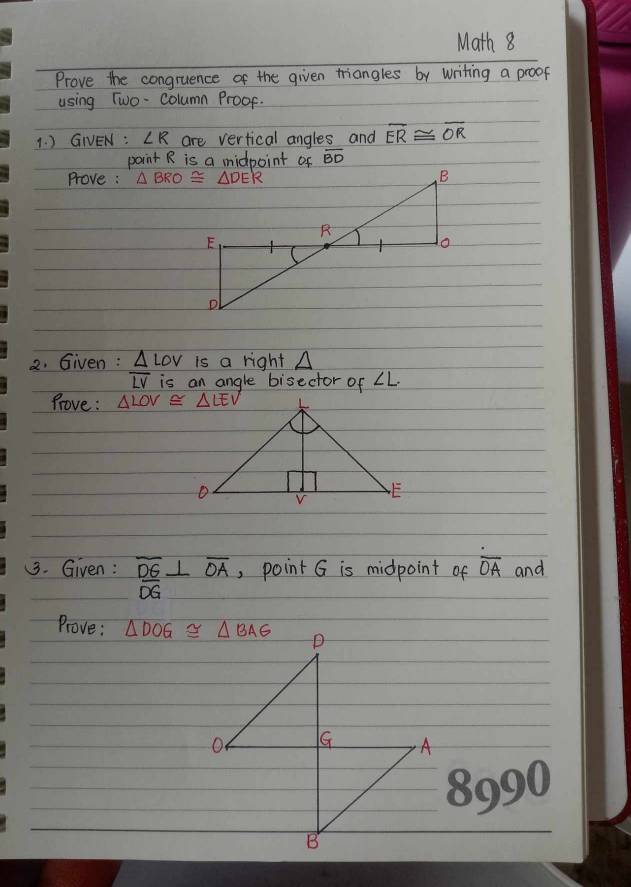 Math 8
Prove the congruence of the given triangles by writing a proof
using Two-Column Proof.
1.) GIVEN : ∠R are vertical angles and E̅R̅ ≅ O̅R̅
point R is a midpoint of B̅D̅
Prove : △ BRO ≅ △DER
B
R
E
O
D
2. Given : △ LOV is a right △
L̅V̅ is an angle bisector of ∠L.
Prove : △LOV ≅ △LEV
L
O
V
E
3. Given : D̅G̅ ⊥ O̅A̅, point G is midpoint of O̅A̅ and
D̅G̅
Prove: △DOG ≅ △BAG
D
O
G
A
8990
B